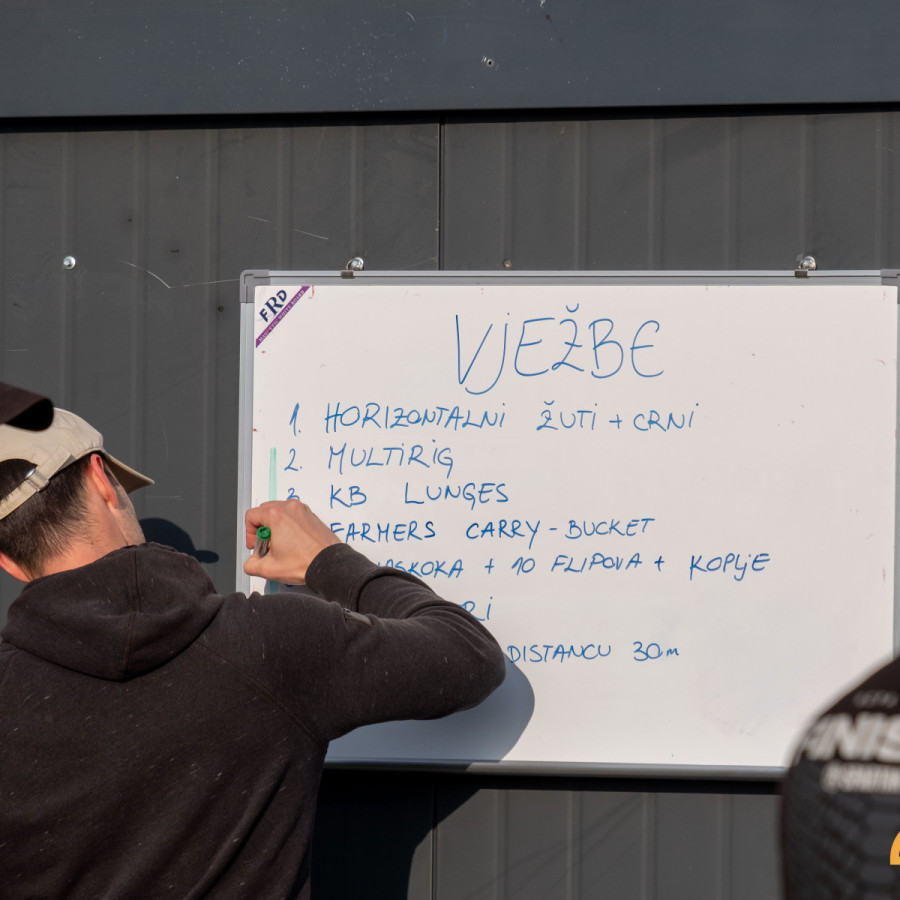 FRD
VJEŽBE
1. HORIZONTALNI ŽUTI + CRNI
2. MULTIRIG
3 KB LUNGES
FARMERS CARRY - BUCKET
+ 10 FLIPOVA + KOPLJE
DISTANCU 30m